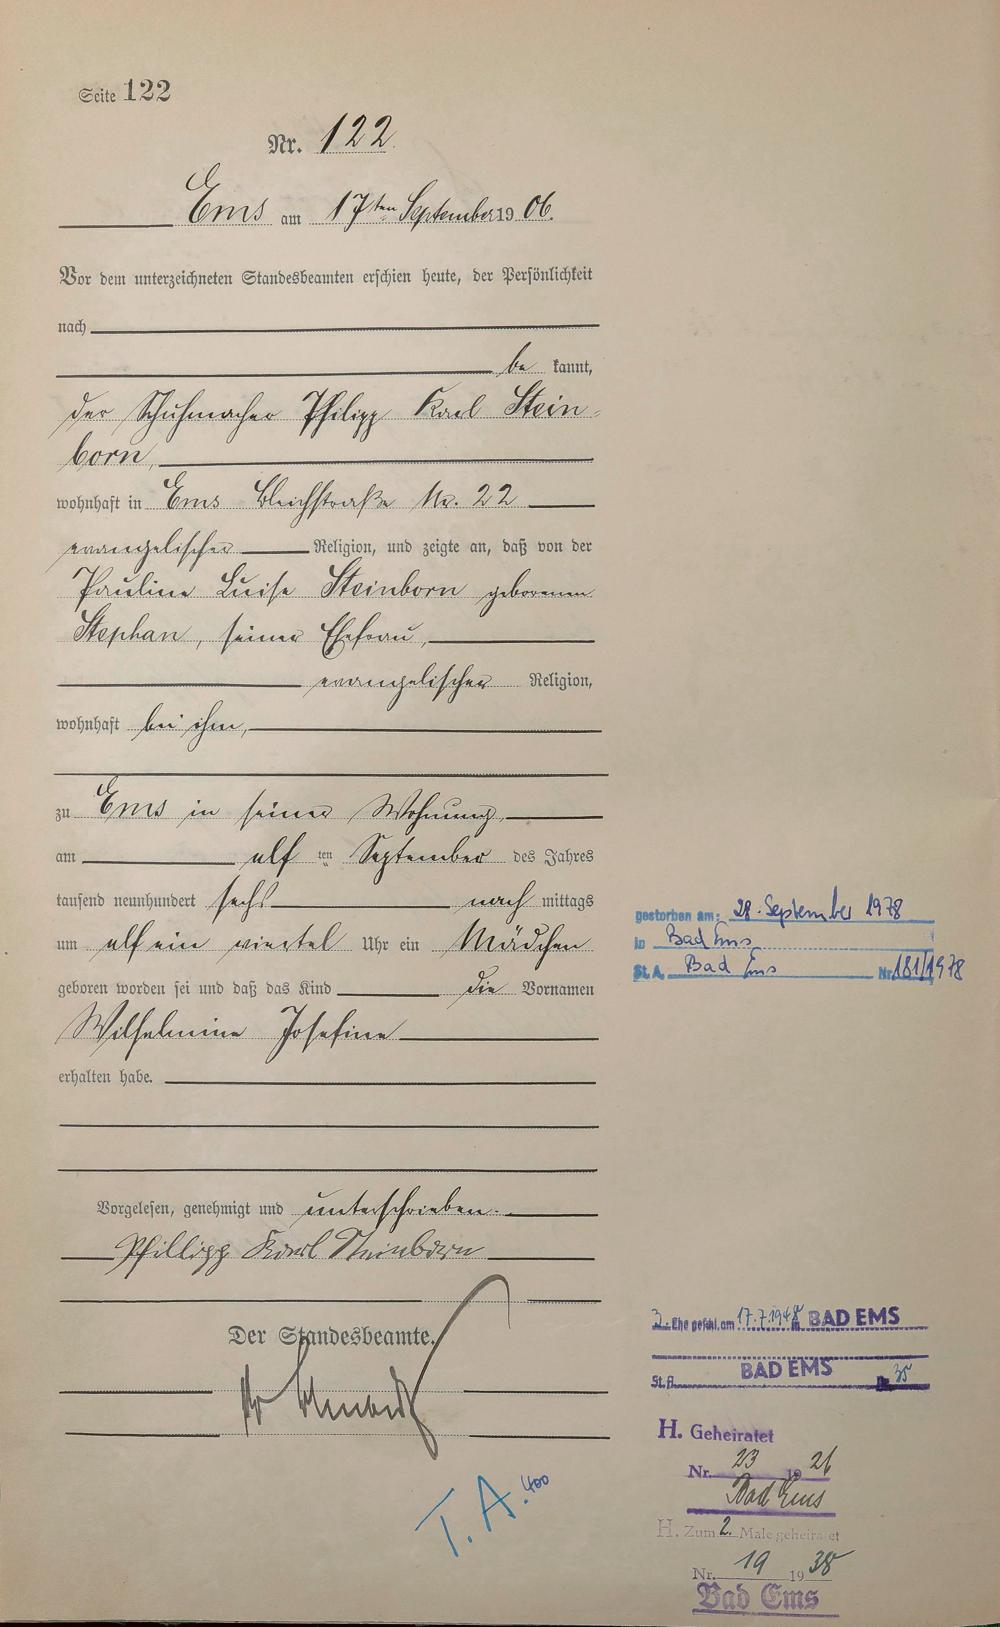 Seite 122
Nr. 122.
Ems am 17ten September 1906.
Vor dem unterzeichneten Standesbeamten erschien heute, der Persönlichkeit
nach
be kannt,
der Schuhmacher Philipp Karl Stein-
born,
wohnhaft in Ems Bleichstraße Nr. 22
evangelischer Religion, und zeigte an, daß von der
Pauline Luise Steinborn geborenen
Stephan, seiner Ehefrau,
evangelischer Religion,
wohnhaft bei ihm,
zu Ems in seiner Wohnung,
am elf ten September des Jahres
tausend neunhundert sechs nach mittags
um elf ein viertel Uhr ein Mädchen
geboren worden sei und daß das Kind die Vornamen
Wilhelmine Josefine
erhalten habe.
Vorgelesen, genehmigt und unterschrieben.
Phillipp Karl Steinborn
Der Standesbeamte.
gestorben am: 28. September 1978
in Bad Ems
St. A. Bad Ems Nr. 181/1978
3. Ehe geschl. am 17.7.1948 in BAD EMS
St. A. BAD EMS Nr. 35
H. Geheiratet
Nr. 23 1926
Bad Ems
H. Zum 2. Male geheiratet
Nr. 19 1938
Bad Ems
T. A. 400